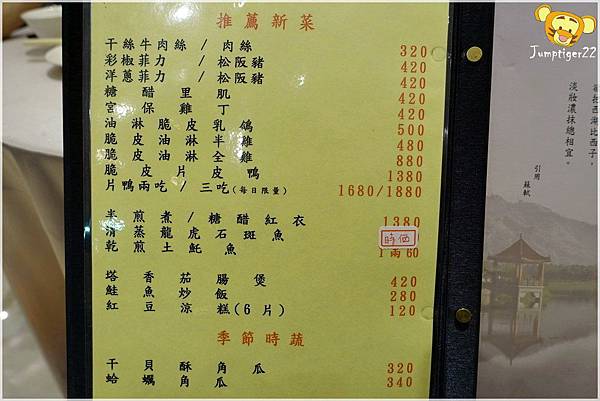 推薦新菜
干絲牛肉絲 / 肉絲 320
彩椒菲力 / 松阪豬 420
洋蔥菲力 / 松阪豬 420
糖醋里肌 420
宮保雞丁 420
油淋脆皮乳鴿 500
脆皮油淋半雞 480
脆皮油淋全雞 880
脆皮片皮鴨 1380
片鴨兩吃 / 三吃(每日限量) 1680/1880
半煎煮 / 糖醋紅衣 1380
清蒸龍虎石斑魚 時價
乾煎土魠魚 1兩60
塔香茄腸煲 420
鮭魚炒飯 280
紅豆涼糕(6片) 120
季節時蔬
干貝酥角瓜 320
蛤蠣角瓜 340
Jumptiger22
西湖比西子，
淡妝濃抹總相宜。
引用 蘇軾